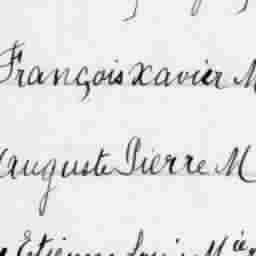 François Xavier M
Auguste Pierre M
Etienne Louis M